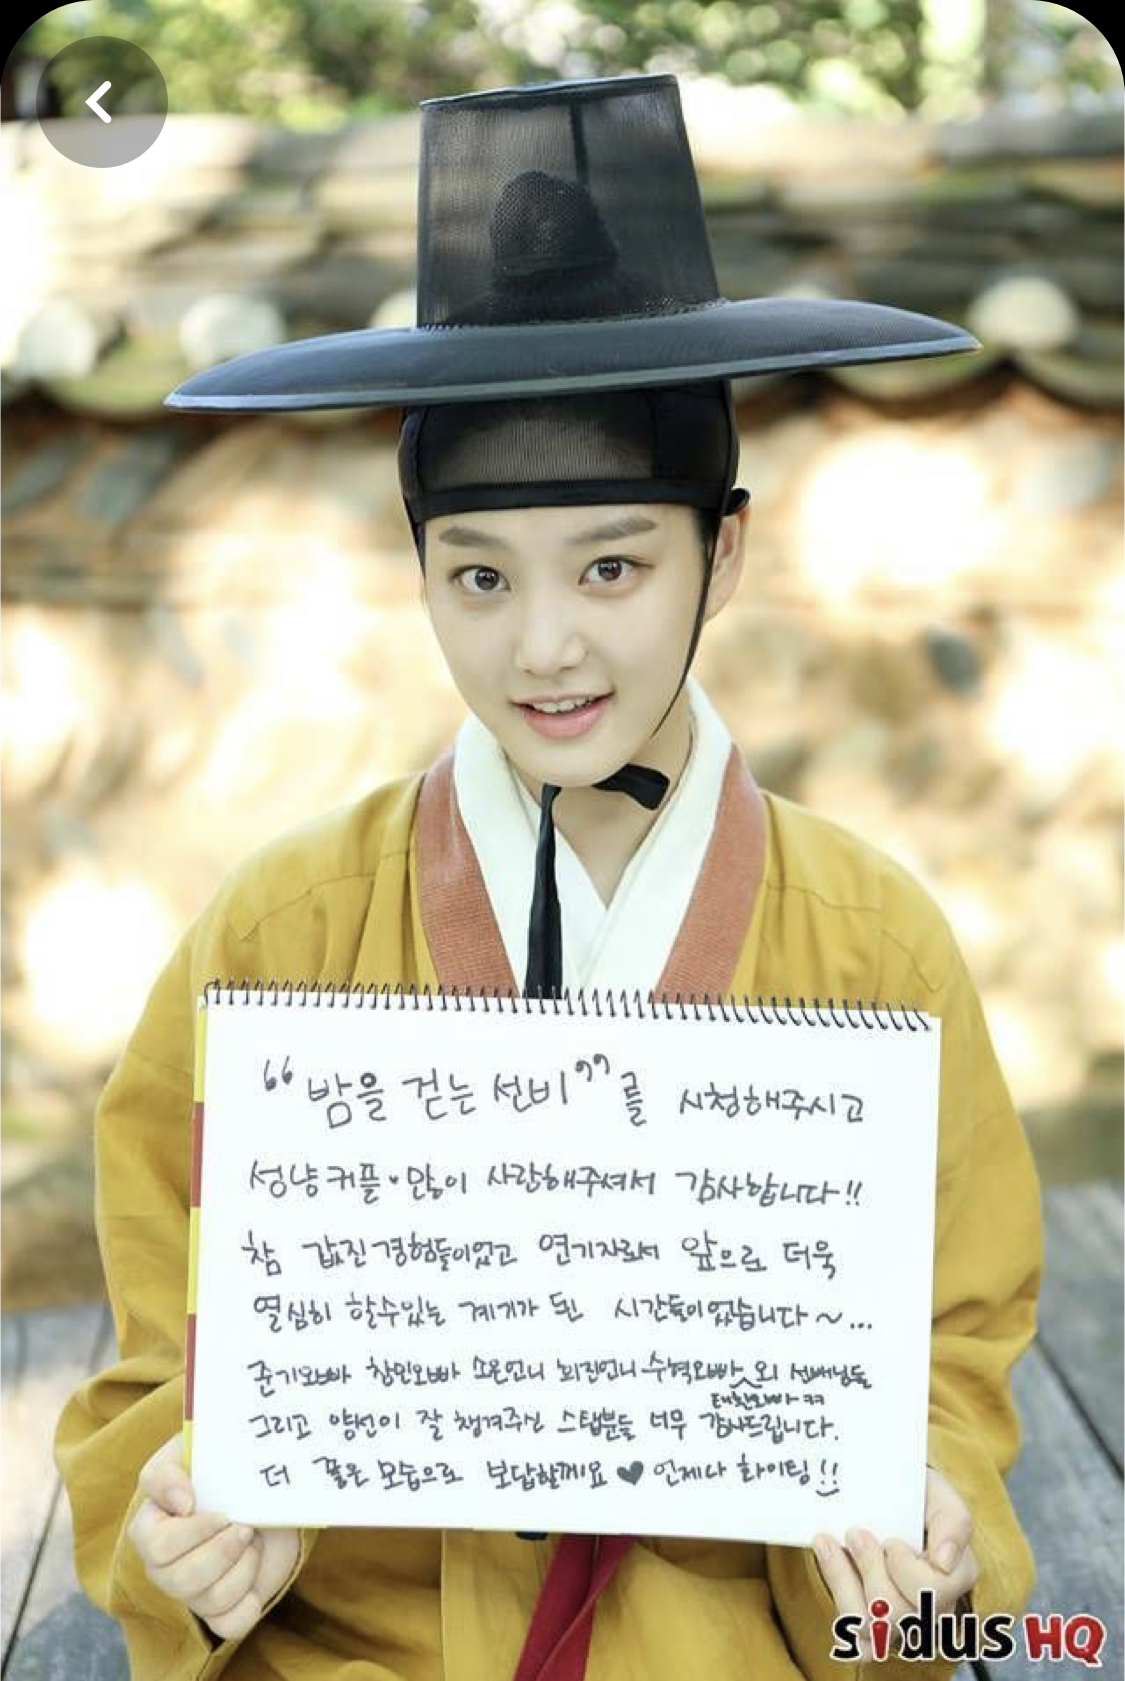 “밤을 걷는 선비”를 시청해주시고
성냥커플 많이 사랑해주셔서 감사합니다!!
참 값진 경험들이었고 연기자로서 앞으로 더욱
열심히 할수있는 계기가 된 시간들이었습니다~...
준기오빠 창민오빠 소은언니 희진언니 수혁오빠 외 선배님들
태환오빠ㅋㅋ
그리고 양선이 잘 챙겨주신 스탭분들 너무 감사드립니다.
더 좋은 모습으로 보답할께요 ♥ 언제나 화이팅!!
sidusHQ